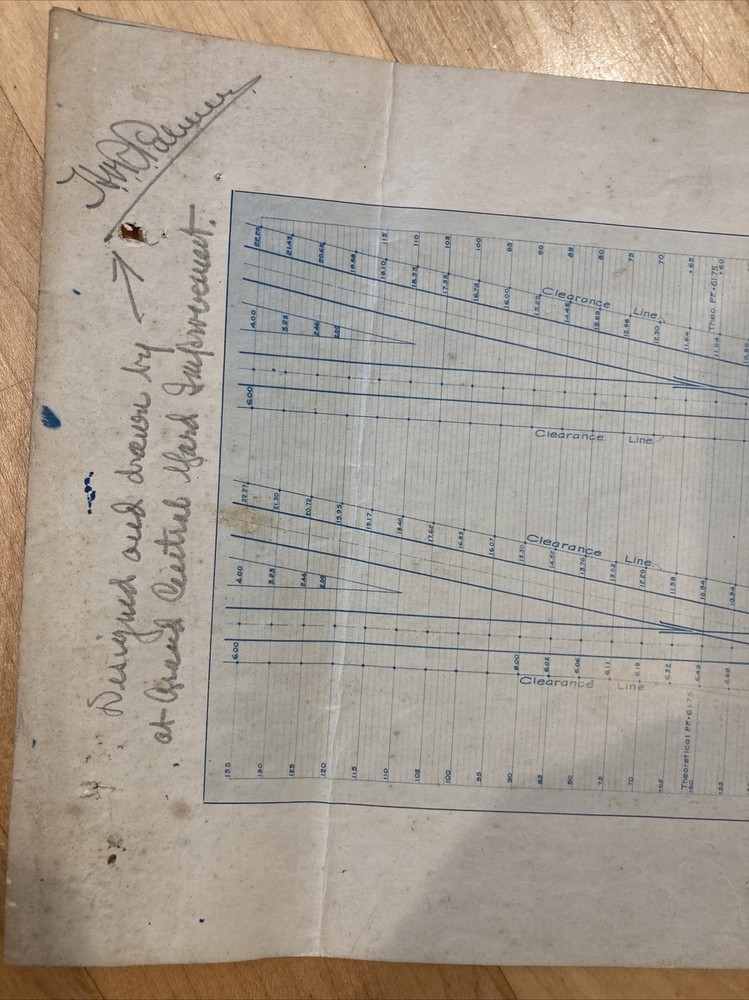 Designed and drawn by → H.R. Palmer
at Grand Central Yard Improvement.
22.25 21.43 20.65 19.88 19.10 18.33 17.55 16.78 16.00 15.23 14.45 13.69 12.98 12.30 11.64 11.04 10.50
115 110 105 100 95 90 85 80 75 70 +65 +60
Theo. PF+61.75
Clearance Line
4.00 3.23 2.46 2.09
6.00
Clearance Line
22.27 21.50 20.72 19.95 19.17 18.40 17.62 16.85 16.07 15.30 14.52 13.76 13.02 12.29 11.59 10.94 10.34
Clearance Line
4.00 3.23 2.46 2.09
6.00 6.00 6.02 6.06 6.11 6.19 6.32 6.49 6.68
Clearance Line
Theoretical PF+61.75
135 130 125 120 115 110 105 100 95 90 85 80 75 70 +65 +60 +55